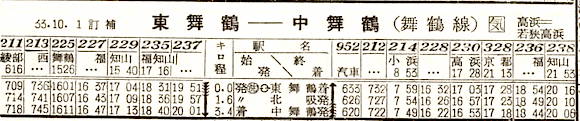 53.10.1訂補 東舞鶴——中舞鶴 (舞鶴線) 気 高浜=若狭高浜
211 213 225 227 229 235 237 キロ程 駅名 952 212 214 228 230 328 216 236 238
綾部 西 舞鶴 … 福 知山 福知山 … 始 終 汽車 … 小浜 … 高浜 京都 福 … 知山
616 … 1526 … 15 40 17 16 … 発 着 … 8 53 … 17 13 … 21 53
709 736 1601 16 37 17 04 18 31 19 51 0.0 発 東舞鶴 着 633 732 7 59 16 32 17 03 17 28 18 54 20 16
714 741 1607 16 41 17 09 18 36 19 57 1.6 〃 北吸 発 626 727 7 54 16 26 16 57 17 23 18 49 20 10
718 745 1611 16 47 17 13 18 40 20 01 3.4 着 中舞鶴 発 620 722 7 49 16 20 16 51 17 18 18 44 20 08